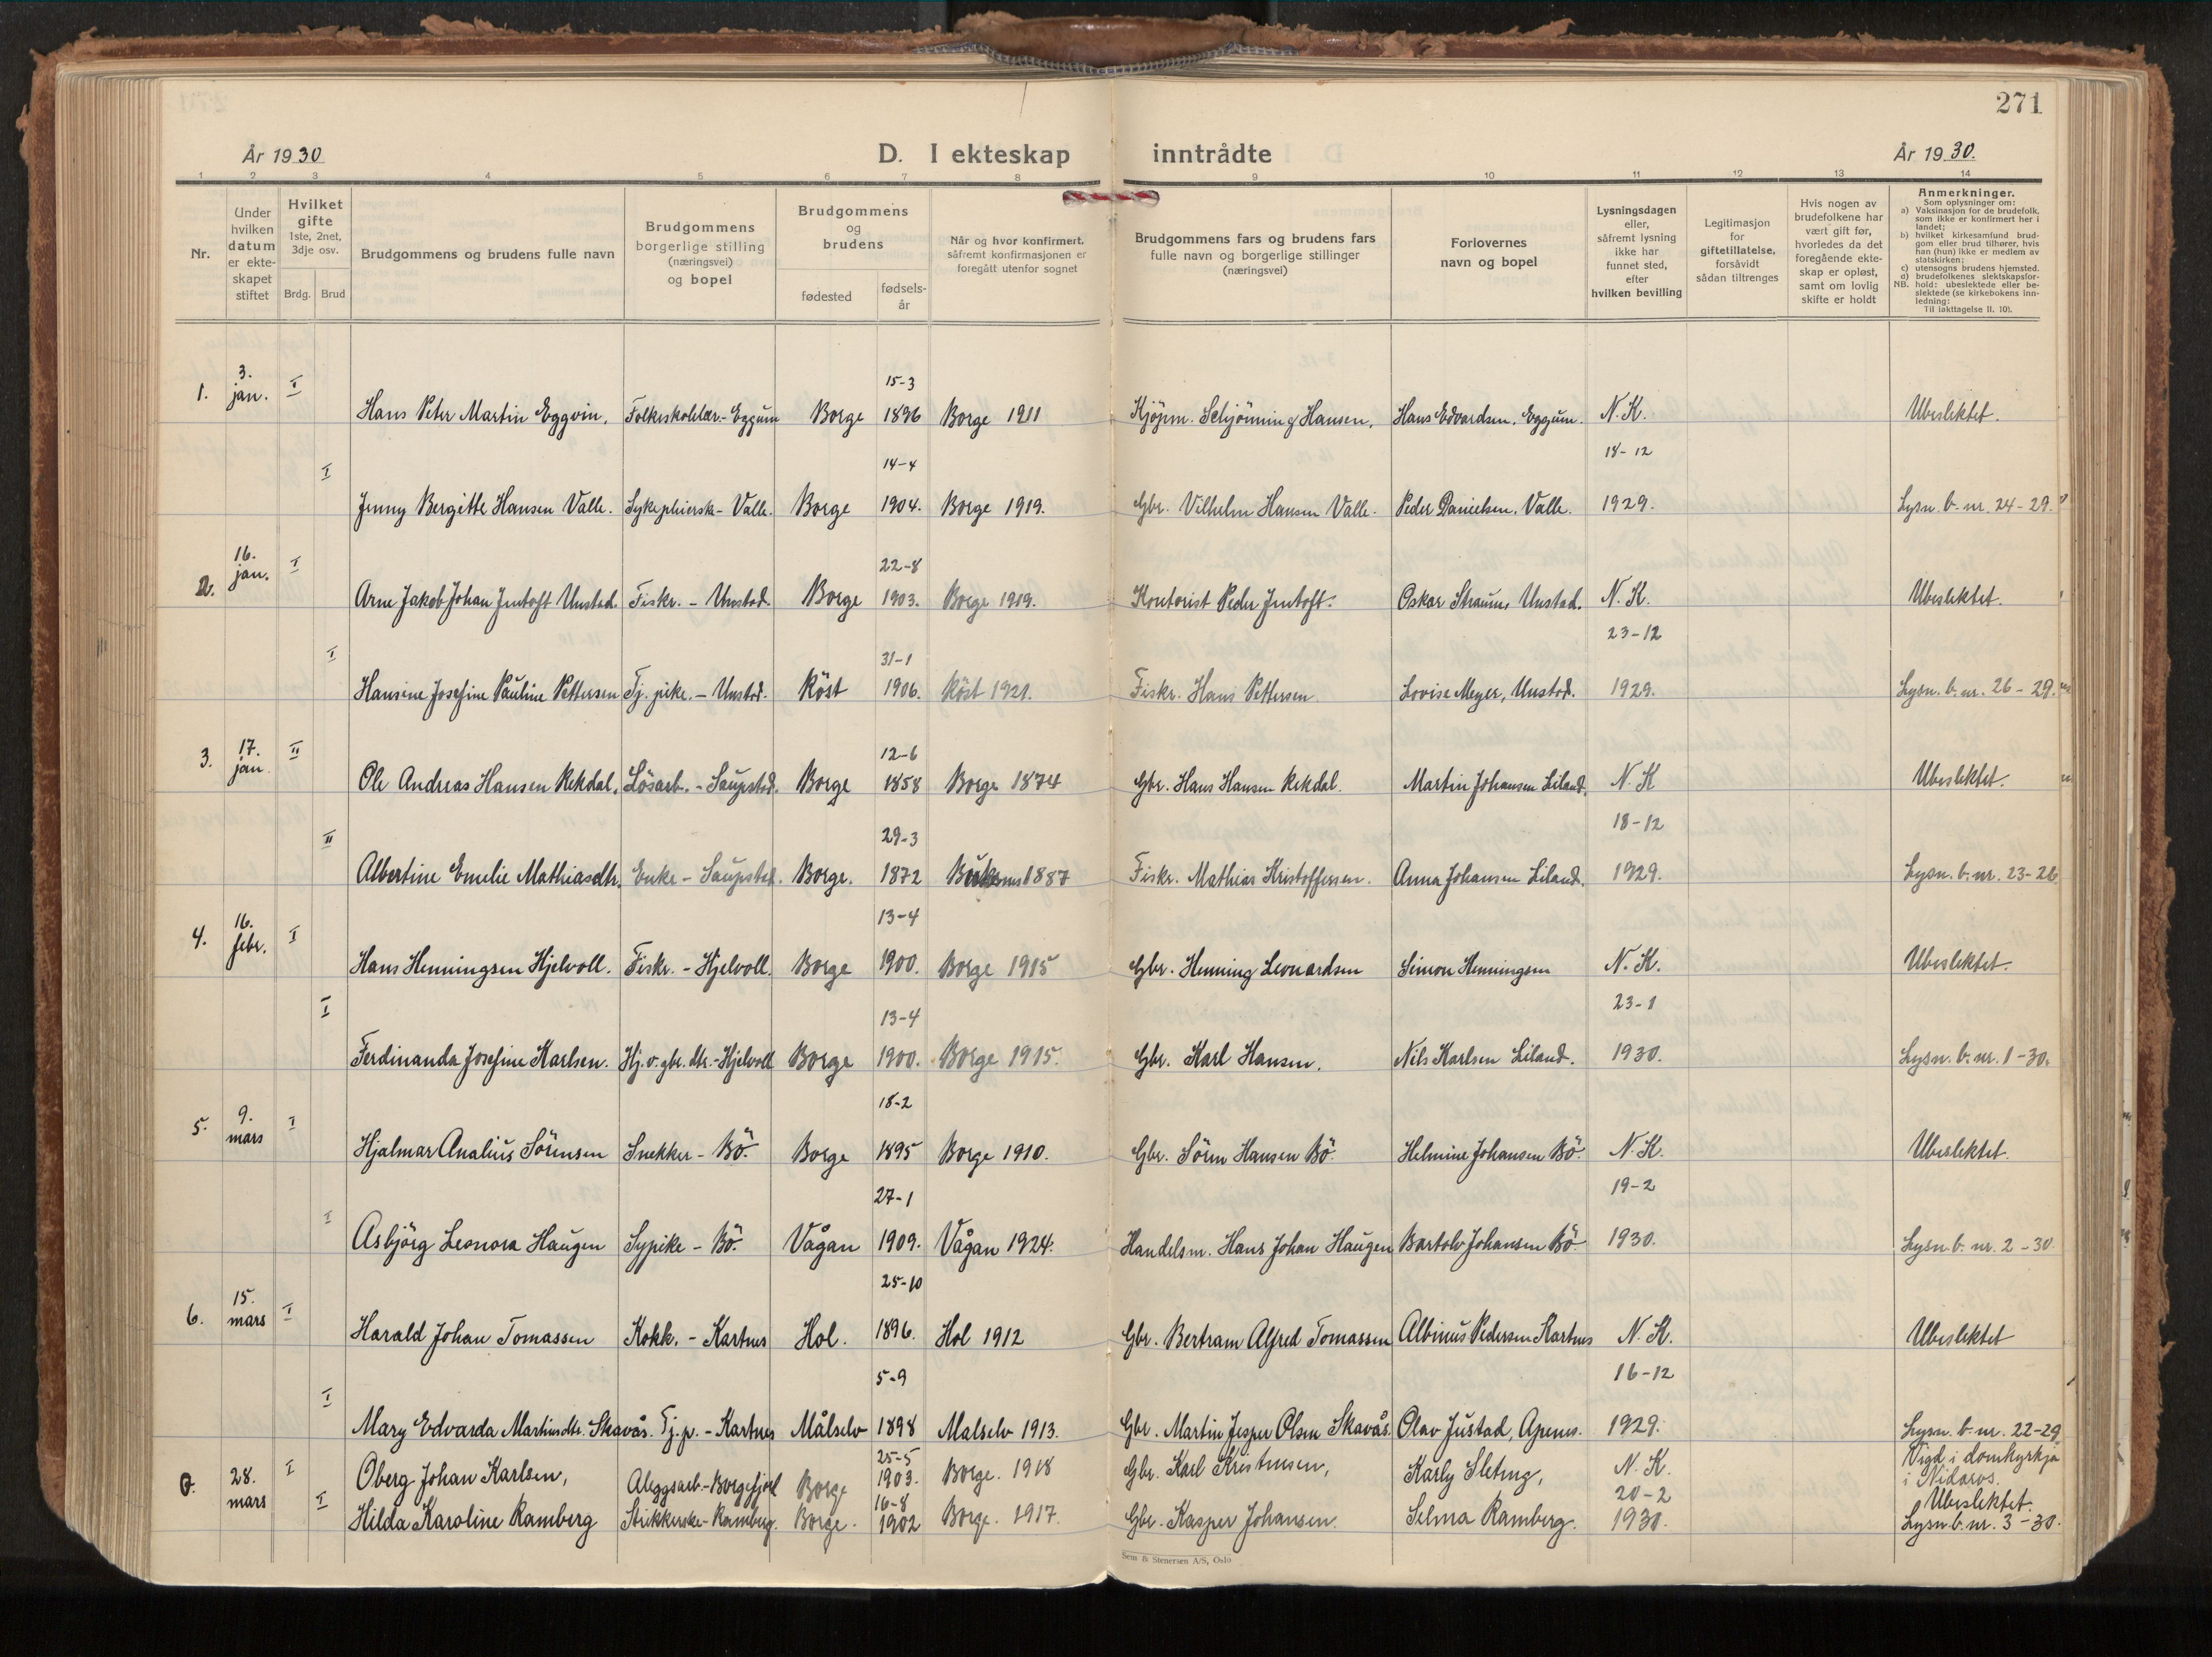 271
År 1930
D. I ekteskap inntrådte
År 1930.
1 2 3 4 5 6 7 8 9 10 11 12 13 14
Nr.
Under
hvilken
datum
er ekte-
skapet
stiftet
Hvilket
gifte
1ste, 2net,
3dje osv.
Brdg. Brud
Brudgommens og brudens fulle navn
Brudgommens
borgerlige stilling
(næringsvei)
og bopel
Brudgommens
og
brudens
fødested
fødsels-
år
Når og hvor konfirmert,
såfremt konfirmasjonen er
foregått utenfor sognet
Brudgommens fars og brudens fars
fulle navn og borgerlige stillinger
(næringsvei)
Forlovernes
navn og bopel
Lysningsdagen
eller,
såfremt lysning
ikke har
funnet sted,
efter
hvilken bevilling
Legitimasjon
for
giftetillatelse,
forsåvidt
sådan tiltrenges
Hvis nogen av
brudefolkene har
vært gift før,
hvorledes da det
foregående ekte-
skap er opløst,
samt om lovlig
skifte er holdt
Anmerkninger.
Som oplysninger om:
a) Vaksinasjon for de brudefolk,
som ikke er konfirmert her i
landet;
b) hvilket kirkesamfund brud-
gom eller brud tilhører, hvis
han (hun) ikke er medlem av
statskirken;
c) utensogns brudens hjemsted.
d) brudefolkenes slektskapsfor-
NB. hold: ubeslektede eller be-
slektede (se kirkebokens inn-
ledning:
Til iakttagelse II. 10).
3. 15-3
1. jan. I Hans Peter Martin Eggvin. Folkeskolelær.- Eggum Borge 1896 Borge 1911 Kjøpm. Schjönning Hansen. Hans Edvardsen, Eggum. N. K. Ubeslektet.
I 14-4 18-12
Jenny Bergitte Hansen Valle. Sykepleierske- Valle. Borge 1904. Borge 1919. Gbr. Vilhelm Hansen Valle. Peder Danielsen, Valle. 1929. Lysn. b. nr. 24-29.
16. 22-8
2. jan. I Arne Jakob Johan Jentoft Unstad. Fiskr. - Unstad. Borge 1903. Borge 1919. Kontorist Peder Jentoft. Oskar Straum, Unstad. N. K. Ubeslektet.
I 31-1 23-12
Hansine Josefine Pauline Pettersen Tj. pike. - Unstad. Röst 1906. Röst 1921. Fiskr. Hans Pettersen. Lovise Meyer, Unstad. 1929. Lysn. b. nr. 26-29.
17. 12-6
3. jan II Ole Andreas Hansen Rekdal. Lösarb. - Saupstad. Borge 1858 Borge 1874 Gbr. Hans Hansen Rekdal. Martin Johansen Liland. N. K Ubeslektet.
II 29-3 18-12
Albertine Emelie Mathiasdtr. Enke - Saupstad. Borge. 1872 1887 Fiskr. Mathias Kristoffersen. Anna Johansen Liland. 1929. Lysn. b. nr. 23-26
16. 13-4
4. febr. I Hans Henningsen Hjelvoll. Fiskr. - Hjelvoll. Borge 1900. Borge 1915 Gbr. Henning Leonardsen Simon Henningsen N. K. Ubeslektet.
I 13-4 23-1
Ferdinanda Josefine Karlsen. Hj. v. gbr. dtr. - Hjelvoll Borge 1900. Borge 1915. Gbr. Karl Hansen. Nils Karlsen Liland. 1930. Lysn. b. nr. 1-30.
9. 18-2
5. mars I Hjalmar Analius Sörensen Snekker - Bö. Borge 1895 Borge 1910. Gbr. Sören Hansen Bö. Helmine Johansen Bö N. K. Ubeslektet.
I 27-1 19-2
Asbjörg Leonora Haugen Sypike - Bö. Vågan 1909. Vågan 1924. Handelsm. Hans Johan Haugen Bartolv Johansen Bö 1930. Lysn. b. nr. 2-30
15. 25-10
6. mars I Harald Johan Tomassen Kokk. - Kartnes Hol. 1896. Hol 1912 Gbr. Bertram Alfred Tomassen Albinus Pedersen Kartnes N. K. Ubeslektet
I 5-9 16-12
Mary Edvarda Martinsdtr. Skavås. Tj. p. - Kartnes Målselv 1898 Malselv 1913. Gbr. Martin Jesper Olsen Skavås. Olav Justad, Apenes. 1929. Lysn. b. nr. 22-29
28. 25-5 Vigd i domkyrkja
mars I Oberg Johan Karlsen, Borgefjord Borge 1903. Borge. 1918 Gbr. Karl Kristensen, Karly N. K. i Nidaros.
I 16-8 20-2 Ubeslektet.
Hilda Karoline Ramberg Strikkerske- Ramberg. Borge. 1902 Borge. 1917. Gbr. Kasper Johansen. Selma Ramberg. 1930. Lysn. b. nr. 3-30.
Sem & Stenersen A/S, Oslo